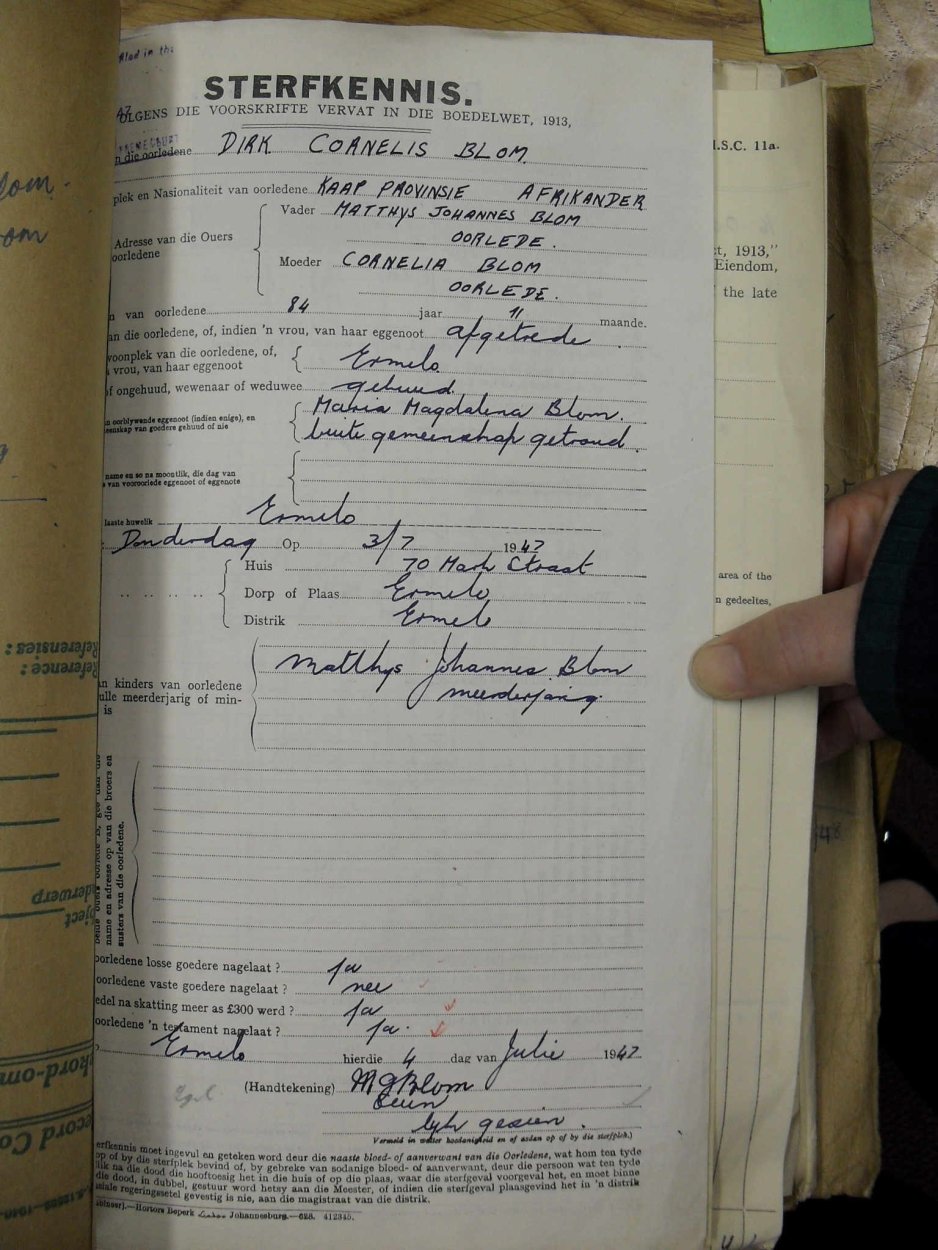 filed in the
STERFKENNIS.
OLGENS DIE VOORSKRIFTE VERVAT IN DIE BOEDELWET, 1913,
n die oorledene DIRK CORNELIS BLOM
plek en Nasionaliteit van oorledene KAAP PROVINSIE AFRIKANDER
Vader MATTHYS JOHANNES BLOM
Adresse van die Ouers
OORLEDE.
oorledene
Moeder CORNELIA BLOM
OORLEDE.
n van oorledene 84 jaar 11 maande.
an die oorledene, of, indien 'n vrou, van haar eggenoot afgetrede
woonplek van die oorledene, of,
vrou, van haar eggenoot
Ermelo
of ongehuud, wewenaar of weduwee gehuud
Maria Magdalena Blom.
n oorblywende eggenoot (indien enige), en
eenskap van goedere gehuud of nie
buite gemeenskap getroud
name en so na moontlik, die dag van
van vooroorlede eggenoot of eggenote
laaste huwelik Ermelo
Donderdag Op 3/7 1947
Huis 70 Mark Straat
Dorp of Plaas Ermelo
Distrik Ermelo
Matthys Johannes Blom
meerderjarig
n kinders van oorledene
ulle meerderjarig of min-
is
name en adresse op van die broers en
susters van die oorledene.
oorledene losse goedere nagelaat? ja
oorledene vaste goedere nagelaat? nee
edel na skatting meer as £300 werd? ja
oorledene 'n testament nagelaat? ja.
Ermelo hierdie 4 dag van Julie 1947
(Handtekening) M J Blom
Seun
lyk gesien.
Vermeld in watter hoedanigheid en of
op of by die sterfplek.)
erfkennis moet ingevul en geteken word deur die naaste bloed- of aanverwant van die Oorledene, wat hom ten tyde
op of by die sterfplek bevind of, by gebreke van sodanige bloed- of aanverwant, deur die persoon wat ten tyde
lik na die dood die hooftoesig het in die huis of op die plaas, waar die sterfgeval voorgeval het, en moet binne
die dood, in dubbel, gestuur word hetsy aan die Meester, of indien die sterfgeval plaasgevind het in 'n distrik
regeringsetel gevestig is nie, aan die magistraat van die distrik.
Hortors Beperk Johannesburg.—628. 412345.
I.S.C. 11a.
t, 1913,"
Eiendom,
the late
area of the
n gedeeltes,
Referensies:
Reference: